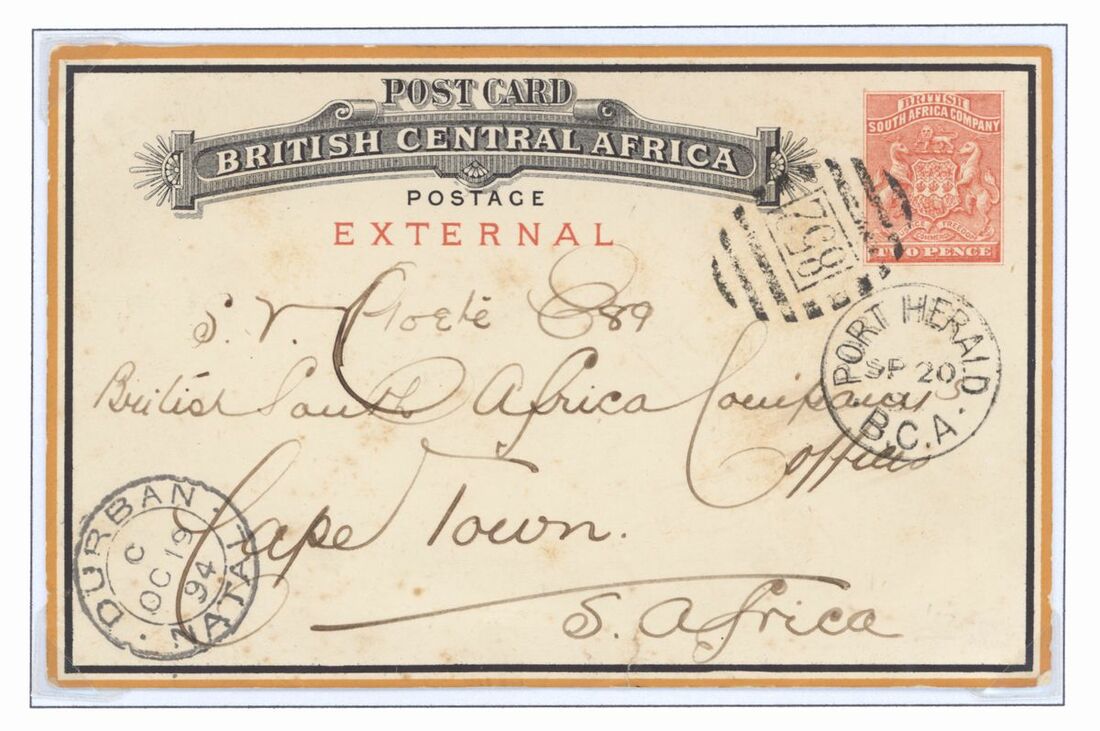 POST CARD
BRITISH CENTRAL AFRICA
POSTAGE
EXTERNAL
BRITISH
SOUTH AFRICA COMPANY
TWO PENCE
PORT HERALD
SP 20
B.C.A.
S. V. Cloete Esq
British South Africa Company's
Offices
Cape Town.
S. Africa
DURBAN
C
OC 19
94
NATAL